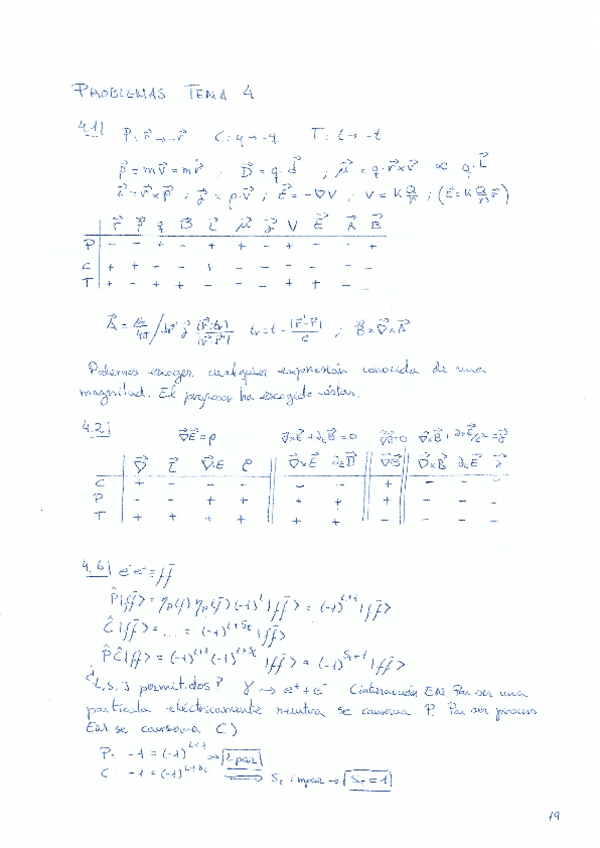 PROBLEMAS TEMA 4
4.1) P: r⃗ → -r⃗ C: q → -q T: t → -t
p⃗ = mv⃗ = mṙ⃗ ; D⃗ = q·d⃗ ; μ⃗ = q·r⃗×v⃗ ∝ q·L⃗
L⃗ = r⃗×p⃗ ; j⃗ = ρ·v⃗ ; E⃗ = -∇V ; V = K Q/r ; (E⃗ = K Q/r² r̂)
r⃗ p⃗ q D⃗ L⃗ μ⃗ j⃗ V E⃗ A⃗ B⃗
P - - + - + + - + - - +
C + + - - + - - - - - -
T + - + + - - - + + - -
A⃗ = μ₀/4π ∫ dr' j⃗ (r⃗',tr)/|r⃗-r⃗'| tr = t - |r⃗'-r⃗|/c ; B⃗ = ∇⃗×A⃗
Podemos escoger cualquier expresión conocida de una
magnitud. El profesor ha escogido éstas.
4.2) ∇⃗E⃗ = ρ ∇×E⃗ + ∂tB⃗ = 0 ∇⃗B⃗ = 0
∇⃗ E⃗ ∇⃗·E ρ ∇⃗×E ∂tB⃗ ∇⃗B⃗ ∇⃗×B⃗ ∂tE⃗ j⃗
C + - - - - - + - - -
P - - + + + + + - - -
T + + + + + + - - - -
4.6) e⁻e⁺ = ff̄
P̂|ff̄> = ηp(f) ηp(f̄) (-1)^L |ff̄> = (-1)^L+1 |ff̄>
Ĉ|ff̄> = ... = (-1)^L+St |ff̄>
P̂Ĉ|ff̄> = (-1)^L+1 (-1)^L+St |ff̄> = (-1)^St+1 |ff̄>
¿L, S, J permitidos? γ → e⁺ + e⁻ (interacción EM. Por ser una
partícula eléctricamente neutra se conserva P. Por ser proceso
EM se conserva C)
P: -1 = (-1)^L+1 → L par
C: -1 = (-1)^L+St ⟹ St impar → St = 1
19